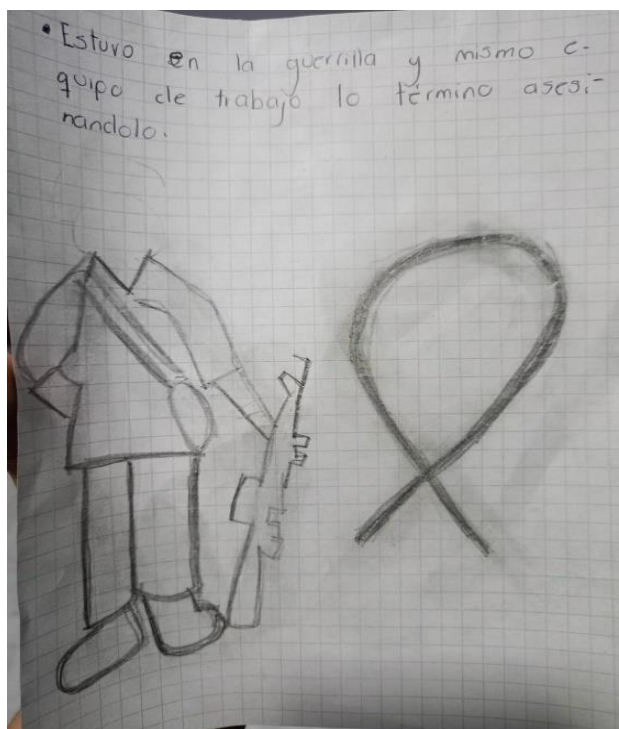 • Estuvo en la guerrilla y mismo e-
quipo de trabajo lo término asesi-
nandolo.